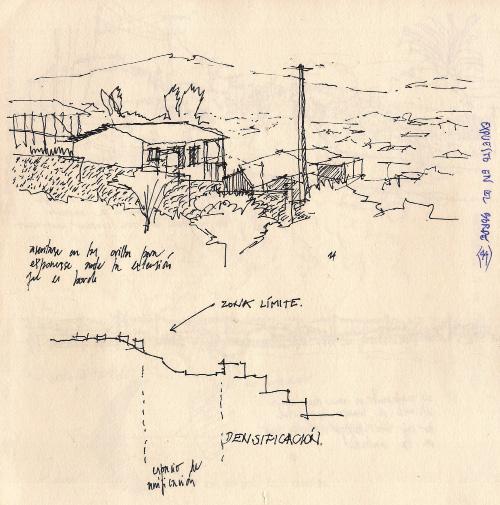 asentarse en la orilla para
exponerse ante la extensión
que es borde
ZONA LÍMITE.
DENSIFICACIÓN.
espacio de
unificación
EXPUESTO EN EL BORDE